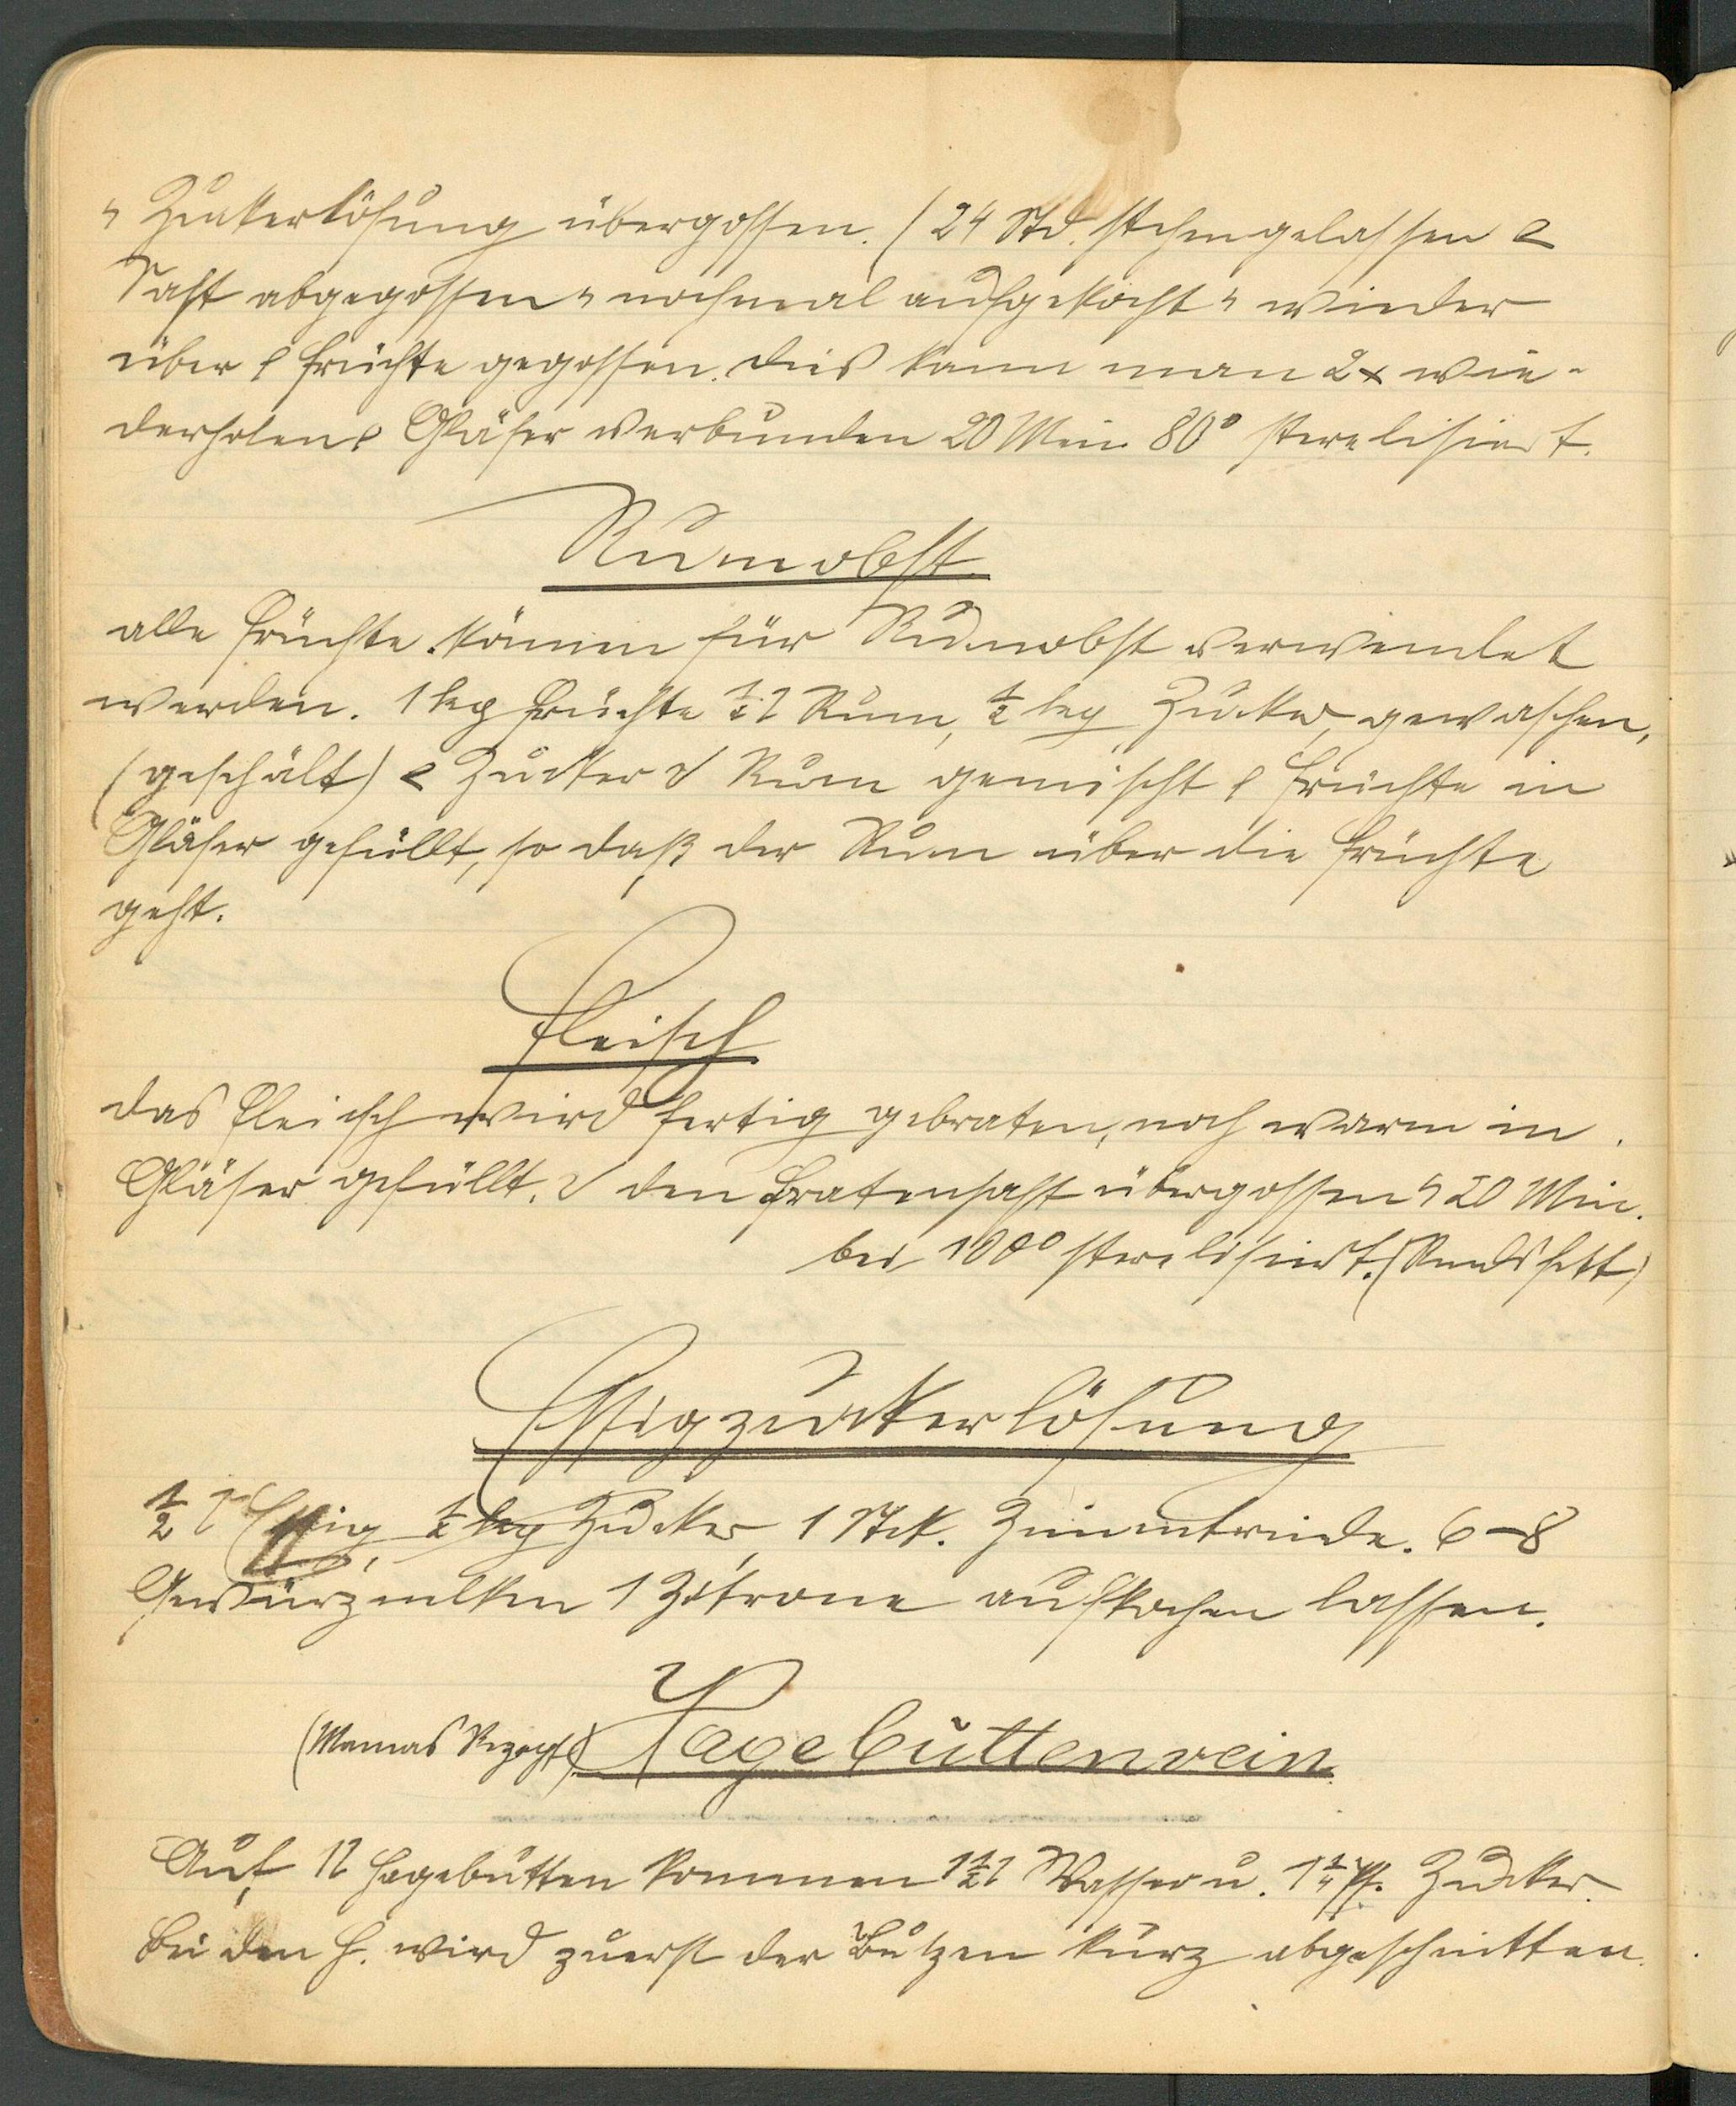 u Zuckerlösung übergossen. (24 Std. stehen gelassen
Saft abgegossen u nochmal aufgekocht u wieder
über d Früchte gegossen. Dies kann man 2x wie-
derholen Gläser verbunden 20 Min 80° sterelisiert.
Rumobst
alle Früchte können für Rumobst verwendet
werden. 1 kg Früchte ½ l Rum, ½ kg Zucker, gewaschen,
(geschält) Zucker Rum gemischt d Früchte in
Gläser gefüllt, so daß der Rum über die Früchte
geht.
Fleisch
das Fleisch wird fertig gebraten, noch warm in
Gläser gefüllt. den Bratensaft übergossen u 20 Min.
bei 100° sterelisiert. (Rindsfett)
Essigzuckerlösung
½ l Essig, ½ kg Zucker, 1 Stck. Zimmtrinde. 6–8
Gewürznelken 1 Zitrone aufkochen lassen.
(Mamas Rezept) Hagebuttenwein
Auf 1 l Hagebutten kommen 1½ l Wasser u. 1¼ Pf. Zucker.
Bei den H. wird zuerst der Butzen kurz abgeschnitten.